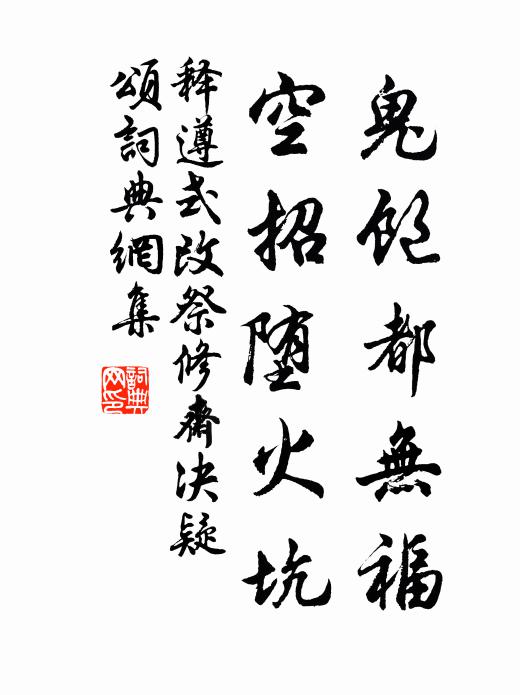 鬼飽都無福
空招堕火坑
释遵式改祭修齋決疑
頌詞典網集
詞典
网印